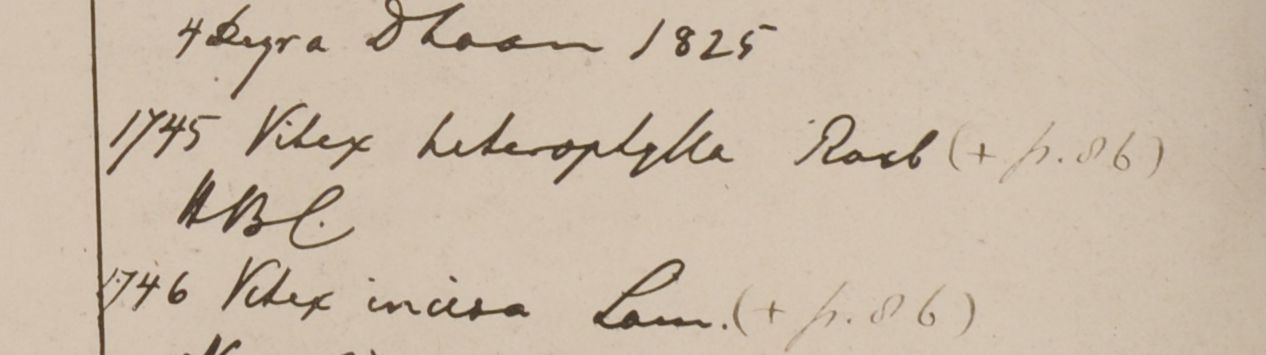 4 Deyra Dhoon 1825
1745 Vitex heterophylla Roxb (+ p. 86)
HBC.
1746 Vitex incisa Lam. (+ p. 86)